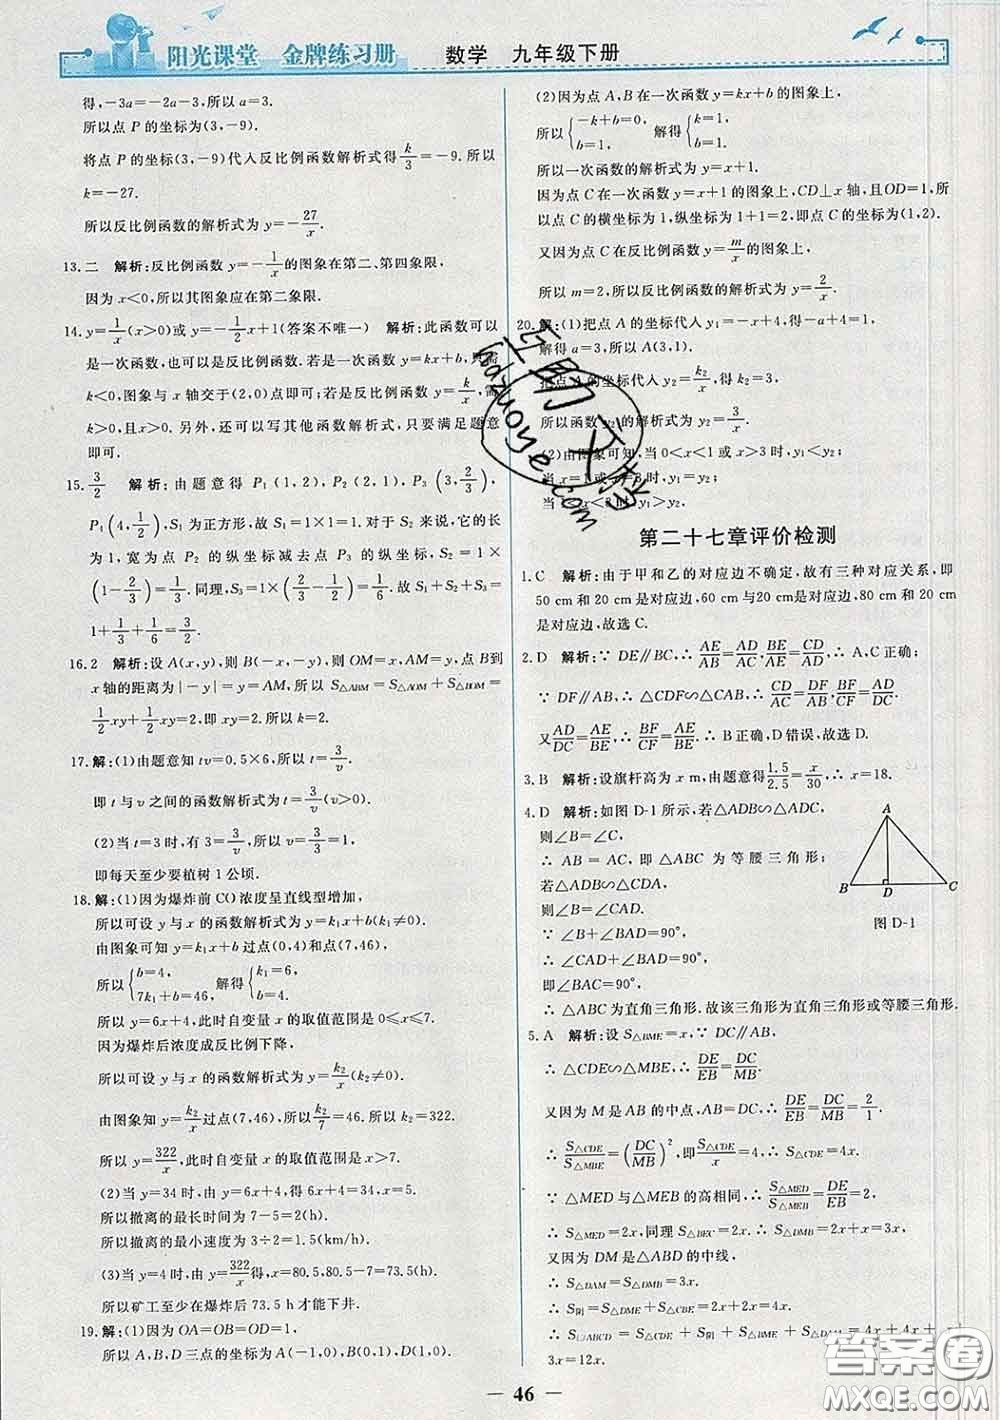 阳光课堂 金牌练习册 数学 九年级下册
得,-3a=-2a-3,所以a=3.
所以点P的坐标为(3,-9).
将点P的坐标(3,-9)代入反比例函数解析式得k/3=-9.所以
k=-27.
所以反比例函数的解析式为y=-27/x.
13.二 解析:反比例函数y=-1/x的图象在第二、第四象限,
因为x<0,所以其图象应在第二象限.
14.y=1/x(x>0)或y=-1/2x+1(答案不唯一) 解析:此函数可以
是一次函数,也可以是反比例函数.若是一次函数y=kx+b,只需
k<0,图象与x轴交于(2,0)点即可;若是反比例函数y=k/x,需
k>0,且x>0.另外,还可以写其他函数解析式,只要满足题意
即可.
15.3/2 解析:由题意得P₁(1,2),P₂(2,1),P₃(3,2/3),
P₄(4,1/2),S₁为正方形,故S₁=1×1=1.对于S₂来说,它的长
为1,宽为点P₂的纵坐标减去点P₃的纵坐标,S₂=1×
(1-2/3)=1/3.同理,S₃=1×(2/3-1/2)=1/6.故S₁+S₂+S₃=
1+1/3+1/6=3/2.
16.2 解析:设A(x,y),则B(-x,-y),则OM=x,AM=y,点B到
x轴的距离为|-y|=y=AM,所以S△ABM=S△AOM+S△BOM=
1/2xy+1/2xy=2,即xy=2.所以k=2.
17.解:(1)由题意知tv=0.5×6,所以t=3/v.
即t与v之间的函数解析式为t=3/v(v>0).
(2)当t=3时,有3=3/v,所以v=1.
即每天至少要植树1公顷.
18.解:(1)因为爆炸前CO浓度呈直线型增加,
所以可设y与x的函数解析式为y=k₁x+b(k₁≠0).
由图象可知y=k₁x+b过点(0,4)和点(7,46),
所以{b=4,7k₁+b=46, 解得{k₁=6,b=4.
所以y=6x+4,此时自变量x的取值范围是0≤x≤7.
因为爆炸后浓度成反比例下降,
所以可设y与x的函数解析式为y=k₂/x(k₂≠0).
由图象知y=k₂/x过点(7,46),所以k₂/7=46.所以k₂=322.
所以y=322/x,此时自变量x的取值范围是x>7.
(2)当y=34时,由y=6x+4,得6x+4=34,x=5.
所以撤离的最长时间为7-5=2(h).
所以撤离的最小速度为3÷2=1.5(km/h).
(3)当y=4时,由y=322/x得,x=80.5,80.5-7=73.5(h).
所以矿工至少在爆炸后73.5 h才能下井.
19.解:(1)因为OA=OB=OD=1,
所以A,B,D三点的坐标为A(-1,0),B(0,1),D(1,0).
(2)因为点A,B在一次函数y=kx+b的图象上,
所以{-k+b=0,b=1. 解得{k=1,b=1.
所以一次函数的解析式为y=x+1.
因为点C在一次函数y=x+1的图象上,CD⊥x轴,且OD=1,所
以点C的横坐标为1,纵坐标为1+1=2,即点C的坐标为(1,2).
又因为点C在反比例函数y=m/x的图象上,
所以m=2,所以反比例函数的解析式为y=2/x.
20.解:(1)把点A的坐标代入y₁=-x+4,得-a+4=1.
解得a=3,所以A(3,1).
把点A的坐标代入y₂=k₂/x,得k₂=3.
所以函数y₂的解析式为y₂=3/x.
(2)由图象可知,当0<x<1或x>3时,y₁<y₂;
当x=1或x=3时,y₁=y₂;
当1<x<3时,y₁>y₂.
第二十七章评价检测
1.C 解析:由于甲和乙的对应边不确定,故有三种对应关系,即
50 cm和20 cm是对应边,60 cm与20 cm是对应边,80 cm和20 cm
是对应边,故选C.
2.D 解析:∵DE∥BC,∴AE/AB=AD/AC,BE/AE=CD/AD,∴A,C正确;
∵DF∥AB,∴△CDF∽△CAB,∴CD/AC=DF/AB,BF/FC=AD/DC.
又AD/DC=AE/BE,∴BF/CF=AE/BE.∴B正确,D错误,故选D.
3.B 解析:设旗杆高为x m,由题意得1.5/2.5=x/30,∴x=18.
4.D 解析:如图D-1所示,若△ADB∽△ADC,
则∠B=∠C,
∴AB=AC,即△ABC为等腰三角形;
若△ADB∽△CDA,
则∠B=∠CAD.
∵∠B+∠BAD=90°,
∴∠CAD+∠BAD=90°,
即∠BAC=90°.
∴△ABC为直角三角形.故该三角形为直角三角形或等腰三角形.
A
B
D
C
图D-1
5.A 解析:设S△BME=x,∵DC∥AB,
∴△CDE∽△MBE,∴DE/EB=DC/MB.
又因为M是AB的中点,AB=DC,∴DE/EB=DC/MB=2/1.
∴S△CDE/S△MBE=(DC/MB)²,即S△CDE/x=4,∴S△CDE=4x.
∵△MED与△MEB的高相同,∴S△MED/S△MEB=DE/EB=2,
∴S△MED=2x,同理S△BEC=2x.∴S△DMB=2x+x=3x.
又因为DM是△ABD的中线,
∴S△DAM=S△DMB=3x.
∴S阴=S△DME+S△CBE=2x+2x=4x.
∴S▱ABCD=S△CDE+S阴+S△BME+S△DAM=4x+4x+x+
3x=12x.
46
互助文档
hdzuoye.com
答案圈
MXQE.COM